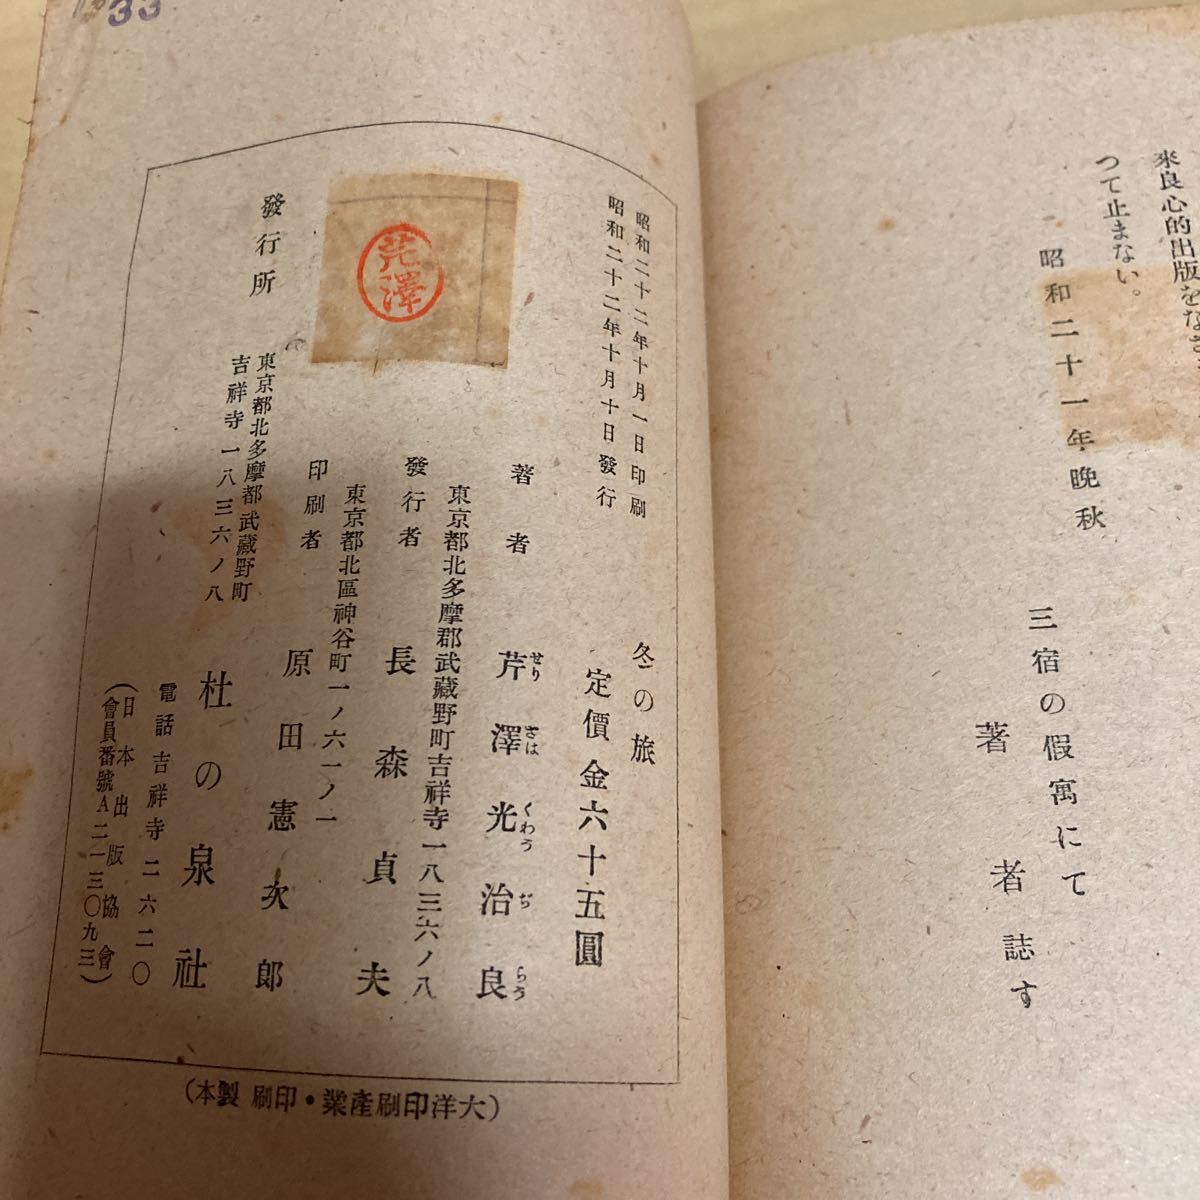 來良心的出版をな
つて止まない。
昭和二十一年晩秋
三宿の假寓にて
著者誌す
33
昭和二十二年十月一日印刷
昭和二十二年十月十日發行
冬の旅
定價金六十五圓
著者 芹澤光治良
せりざはくわうぢらう
東京都北多摩郡武藏野町吉祥寺一八三六ノ八
發行者 長森貞夫
東京都北區神谷町一ノ六一ノ一
印刷者 原田憲次郎
芹澤
發行所
東京都北多摩都武藏野町
吉祥寺一八三六ノ八
杜の泉社
電話吉祥寺二六二〇
(日本出版協會
會員番號A二一三〇九三)
(本製 刷印・業産刷印洋大)